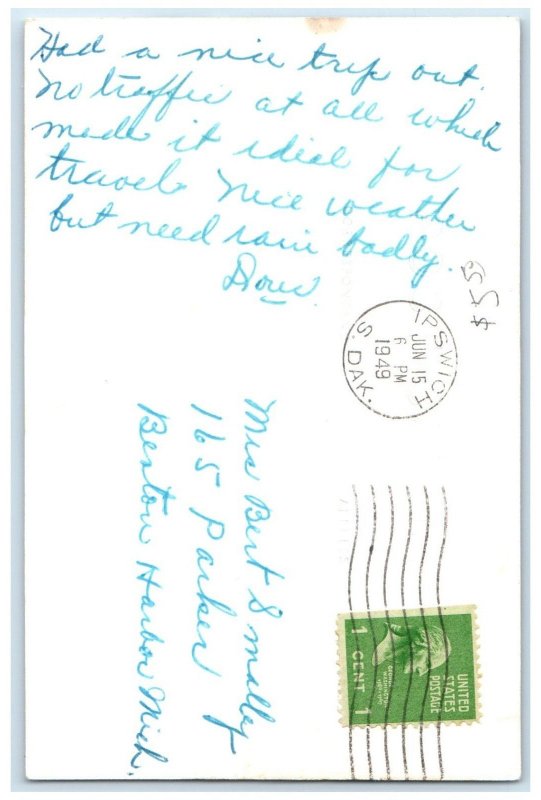 Had a nice trip out.
No traffic at all which
made it ideal for
travel. Nice weather
but need rain badly.
$5.50
IPSWICH
JUN 15
6 PM
1949
S. DAK.
Mrs Bert Smalley
165 Parker
Benton Harbor Mich.
UNITED
STATES
POSTAGE
1 CENT 1